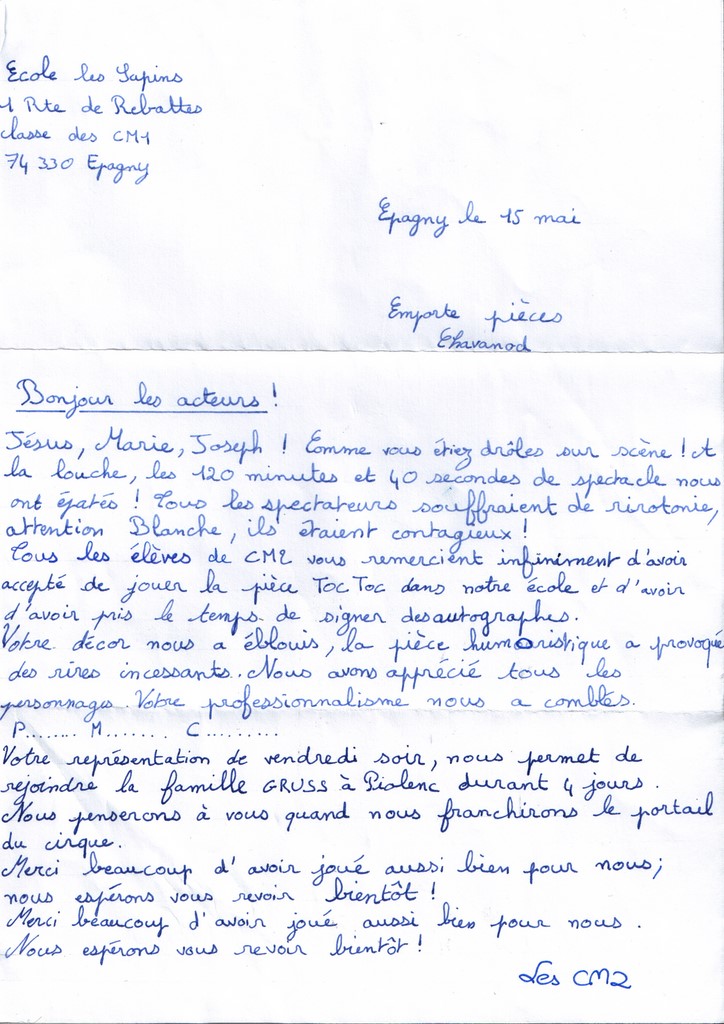 Ecole les Sapins
1 Rte de Rebattes
classe des CM1
74 330 Epagny
Epagny le 15 mai
Emporte pièces
Chavanod
Bonjour les acteurs !
Jésus, Marie, Joseph ! Comme vous étiez drôles sur scène ! A
la louche, les 120 minutes et 40 secondes de spectacle nous
ont épatés ! Tous les spectateurs souffraient de rirotonie,
attention Blanche, ils étaient contagieux !
Tous les élèves de CM2 vous remercient infiniment d'avoir
accepté de jouer la pièce TOC TOC dans notre école et d'avoir
d'avoir pris le temps de signer des autographes.
Votre décor nous a éblouis, la pièce humoristique a provoqué
des rires incessants. Nous avons apprécié tous les
personnages. Votre professionnalisme nous a comblés.
P........ M........ C..........
Votre représentation de vendredi soir, nous permet de
rejoindre la famille GRUSS à Piolenc durant 4 jours.
Nous penserons à vous quand nous franchirons le portail
du cirque.
Merci beaucoup d'avoir joué aussi bien pour nous;
nous espérons vous revoir bientôt !
Merci beaucoup d'avoir joué aussi bien pour nous.
Nous espérons vous revoir bientôt !
Les CM2